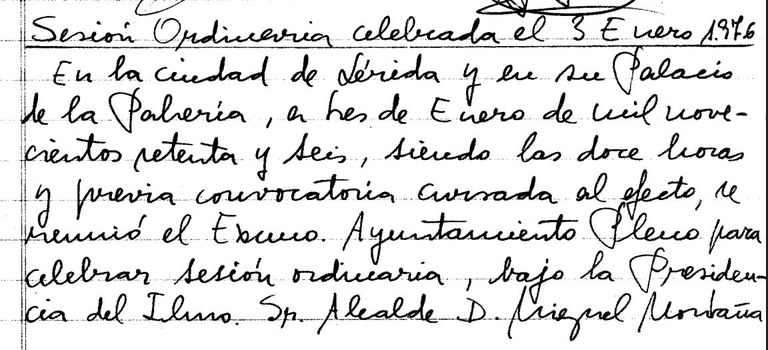 Sesión Ordinaria celebrada el 3 Enero 1.976
En la ciudad de Lérida y en su Palacio
de la Pahería, a tres de Enero de mil nove-
cientos setenta y seis, siendo las doce horas
y previa convocatoria cursada al efecto, se
reunió el Excmo. Ayuntamiento Pleno para
celebrar sesión ordinaria, bajo la Presiden-
cia del Ilmo. Sr. Alcalde D. Miguel Montaña